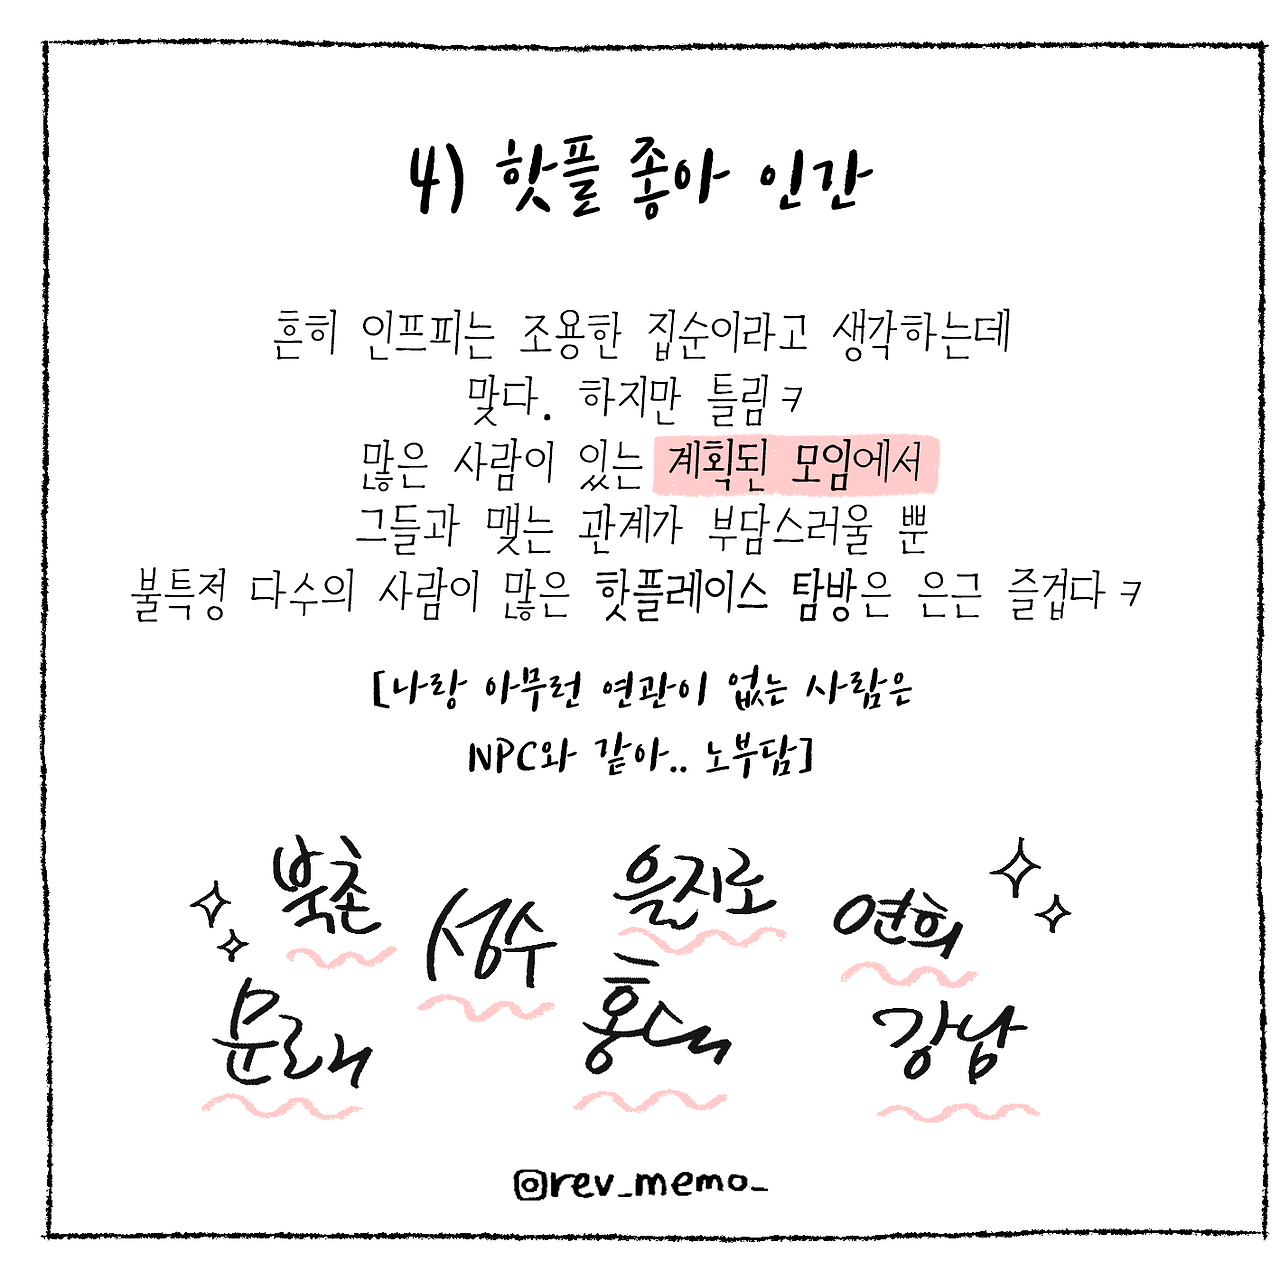 4) 핫플 좋아 인간
흔히 인프피는 조용한 집순이라고 생각하는데
맞다. 하지만 틀림ㅋ
많은 사람이 있는 계획된 모임에서
그들과 맺는 관계가 부담스러울 뿐
불특정 다수의 사람이 많은 핫플레이스 탐방은 은근 즐겁다ㅋ
[나랑 아무런 연관이 없는 사람은
NPC와 같아.. 노부담]
북촌 성수 을지로 연희
문래 홍대 강남
@rev_memo_